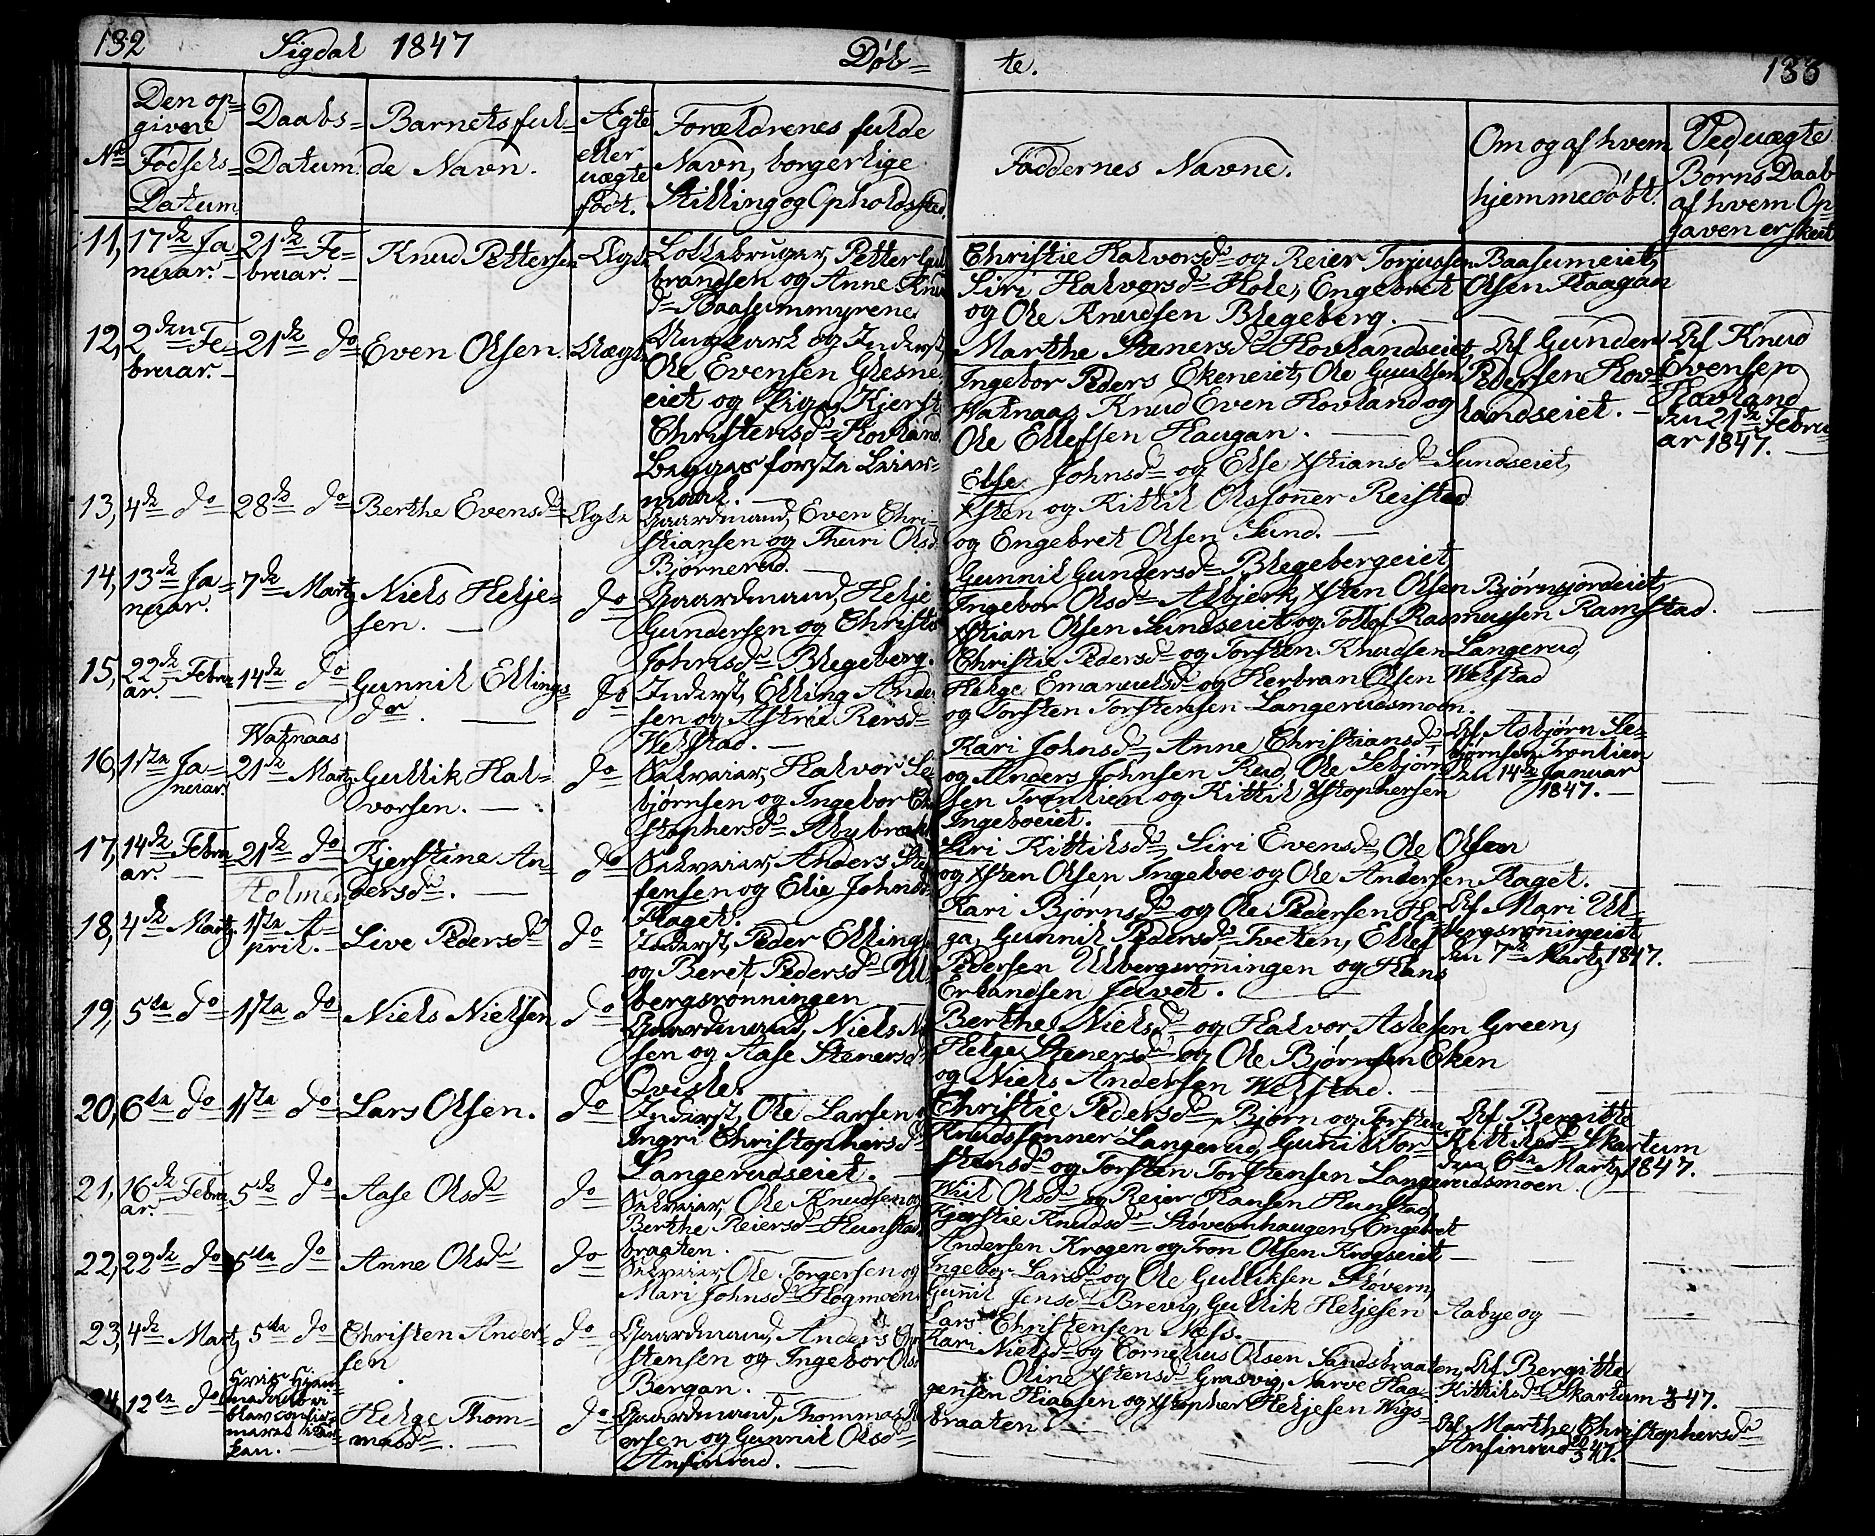 132 Sigdal 1847 Døb= te. 133
Nº
Den op= givne Fødsels= Datum
Daabs= Datum
Barnets ful= de Navn.
Ægte eller uægte født.
Forældrenes fulde Navn, borgerlige Stilling og Opholdssted
Faddernes Navne.
Om og af hvem hjemmedøbt.
Ved uægte Børns Daab af hvem Op= gaven er skeet
11, 17de Ja= nuar. 21de Fe= bruar. Knud Pettersen Ægte
Petter Gul
brandsen og Anne Knu
Baasummyrene
Christie Halvorsdr og Reier Torjussen Baasumeiet,
Siri Halvorsdr Hole, Engebret Olsen Haagan
og Ole Knudsen Blegeberg.
12, 2den Fe= bruar. 21de do Even Olsen. Uægte
Ungkarl og Inderst
Ole Evensen Glesne
eiet og Pige Kjersti
Christensdr Hovland
Begges første Leier=
maal.
Marthe Stenersdr Hovlandseiet,
Ingebor Peders Ekeneiet, Ole Gulliksen
Vatnaas, Knud Even Hovland og
Ole Ellefsen Haugan.
Af Gunder Pedersen Hov= landseiet.
Af Knud Evensen Hovland den 21de Febru= ar 1847.
13, 4de do 28de do Berthe Evensdr Ægte
Gaardmand, Even Chri=
stiansen og Thuri Olsdr
Bjørnerud.
Else Johnsdr og Else Xstiansdr Sundseiet,
Xsten og Kittil Olssønner Reistad
og Engebret Olsen Sund.
14, 13de Ja= nuar. 7de Marts Niels Helje= sen. do
Gaardmand, Helje
Gundersen og Christi
Johnsdr Blegeberg.
Gunnil Gundersdr Blegebergeiet
Ingebor Olsdr Albjerk, Xsten Olsen Bjørnsjordeiet,
Xstian Olsen Sundseiet og Tollof Rasmussen Ramstad.
15, 22de Febru= ar. 14de do Gunnil Ellings= dr. do
Inderst, Elling Ander
sen og Astrie Rersdr
Welstad.
Christie Pedersdr og Torsten Knudsen Langerud,
Helge Emanuelsdr og Herbran Olsen Welstad
og Torsten Torstensen Langerudsmoen.
Vatnaas
16, 1ste Ja= nuar. 21de Marts Gullik Hal= vorsen. do
Selveier, Halvor Se
bjørnsen og Ingebor Chri
stophersdr Abybraat
Kari Johnsdr, Anne Christiansdr
og Anders Johnsen Rud, Ole Sebjørn
sen Tronlien og Kittil Xstophersen
Ingeboeiet.
Af Asbjørn Se= bjørnsen Tronlien den 14de Januar 1847.
17, 14de Febru= ar. 21de do Kjerstine An= dersdr. do
Selveier, Anders Ste
fensen og Elie Johnsdr
Haget.
Siri Kittilsdr, Siri Evensdr, Ole Olsen
og Xsten Olsen Ingeboe og Ole Andersen Haget.
Holmen
18, 4de Marts 1ste A= pril. Live Pedersdr do
Inderst, Peder Ellings
og Beret Pedersdr Ul=
bergsrønningen
Kari Bjørnsdr og Ole Pedersen Ha=
ga, Gunnil Pedersdr Tveten, Ellef
Pedersen Ulbergsrønningen og Hans
Erlandsen Juvet.
Af Mari Ul= bergsrøningeiet den 7de Marts 1847.
19, 5te do 1ste do Niels Nielsen do
Gaardmand, Niels Ni
sen og Aase Stenersdr
Qvisle.
Berthe Nielsdr og Halvor Aslesen Green,
Helge Stenersdr og Ole Bjørnsen Eken
og Niels Andersen Welstad.
20, 6te do 1ste do Lars Olsen. do
Inderst, Ole Larsen o
Ingri Christophersdr
Langerudseiet.
Christie Pedersdr, Bjørn og Torsten
Knudssønner Langerud, Gunil Tor=
stensdr og Torsten Torstensen Langerudsmoen
Af Bergitte Kittilsdr Skartum den 6te Marts 1847.
21, 16de Febru= ar. 5te do Aase Olsdr do
Selveier, Ole Knudsen og
Berthe Reiersdr Hunstad
braaten.
Olsdr og Reier Hansen Hunstad,
Kjerstie Knudsdr Støvernhaugen, Engebret
Andersen Krogen og Tron Olsen Krogseiet
22, 22de do 5te do Anne Olsdr do
Selveier, Ole Torgersen og
Mari Johnsdr Hogmoen
Ingebor Larsdr og Ole Gulliksen Støvern,
Gunil Jensdr Brevig, Gullik Heljesen Aabye og
Lars Christensen Næss.
23, 4de Marts 5te do Christen Ander= sen do
Gaardmand, Anders Chri
stensen og Ingebor Olsdr
Bergan.
Kari Nielsdr og Cornelius Olsen Sandsbraaten,
Oline Xstensdr Grasvig, Narve Haa=
gensen Hiaasen og Xstopher Heljesen Wigs=
braaten.
Af Bergitte Kittilsdr Skartum 47.
24, 12te do Helge Thom= masdr. do
Gaardmand, Thommas
ersen og Gunnil Olsdr
Anfinrud.
Af Marthe Christophersdr Anfinrud 47.